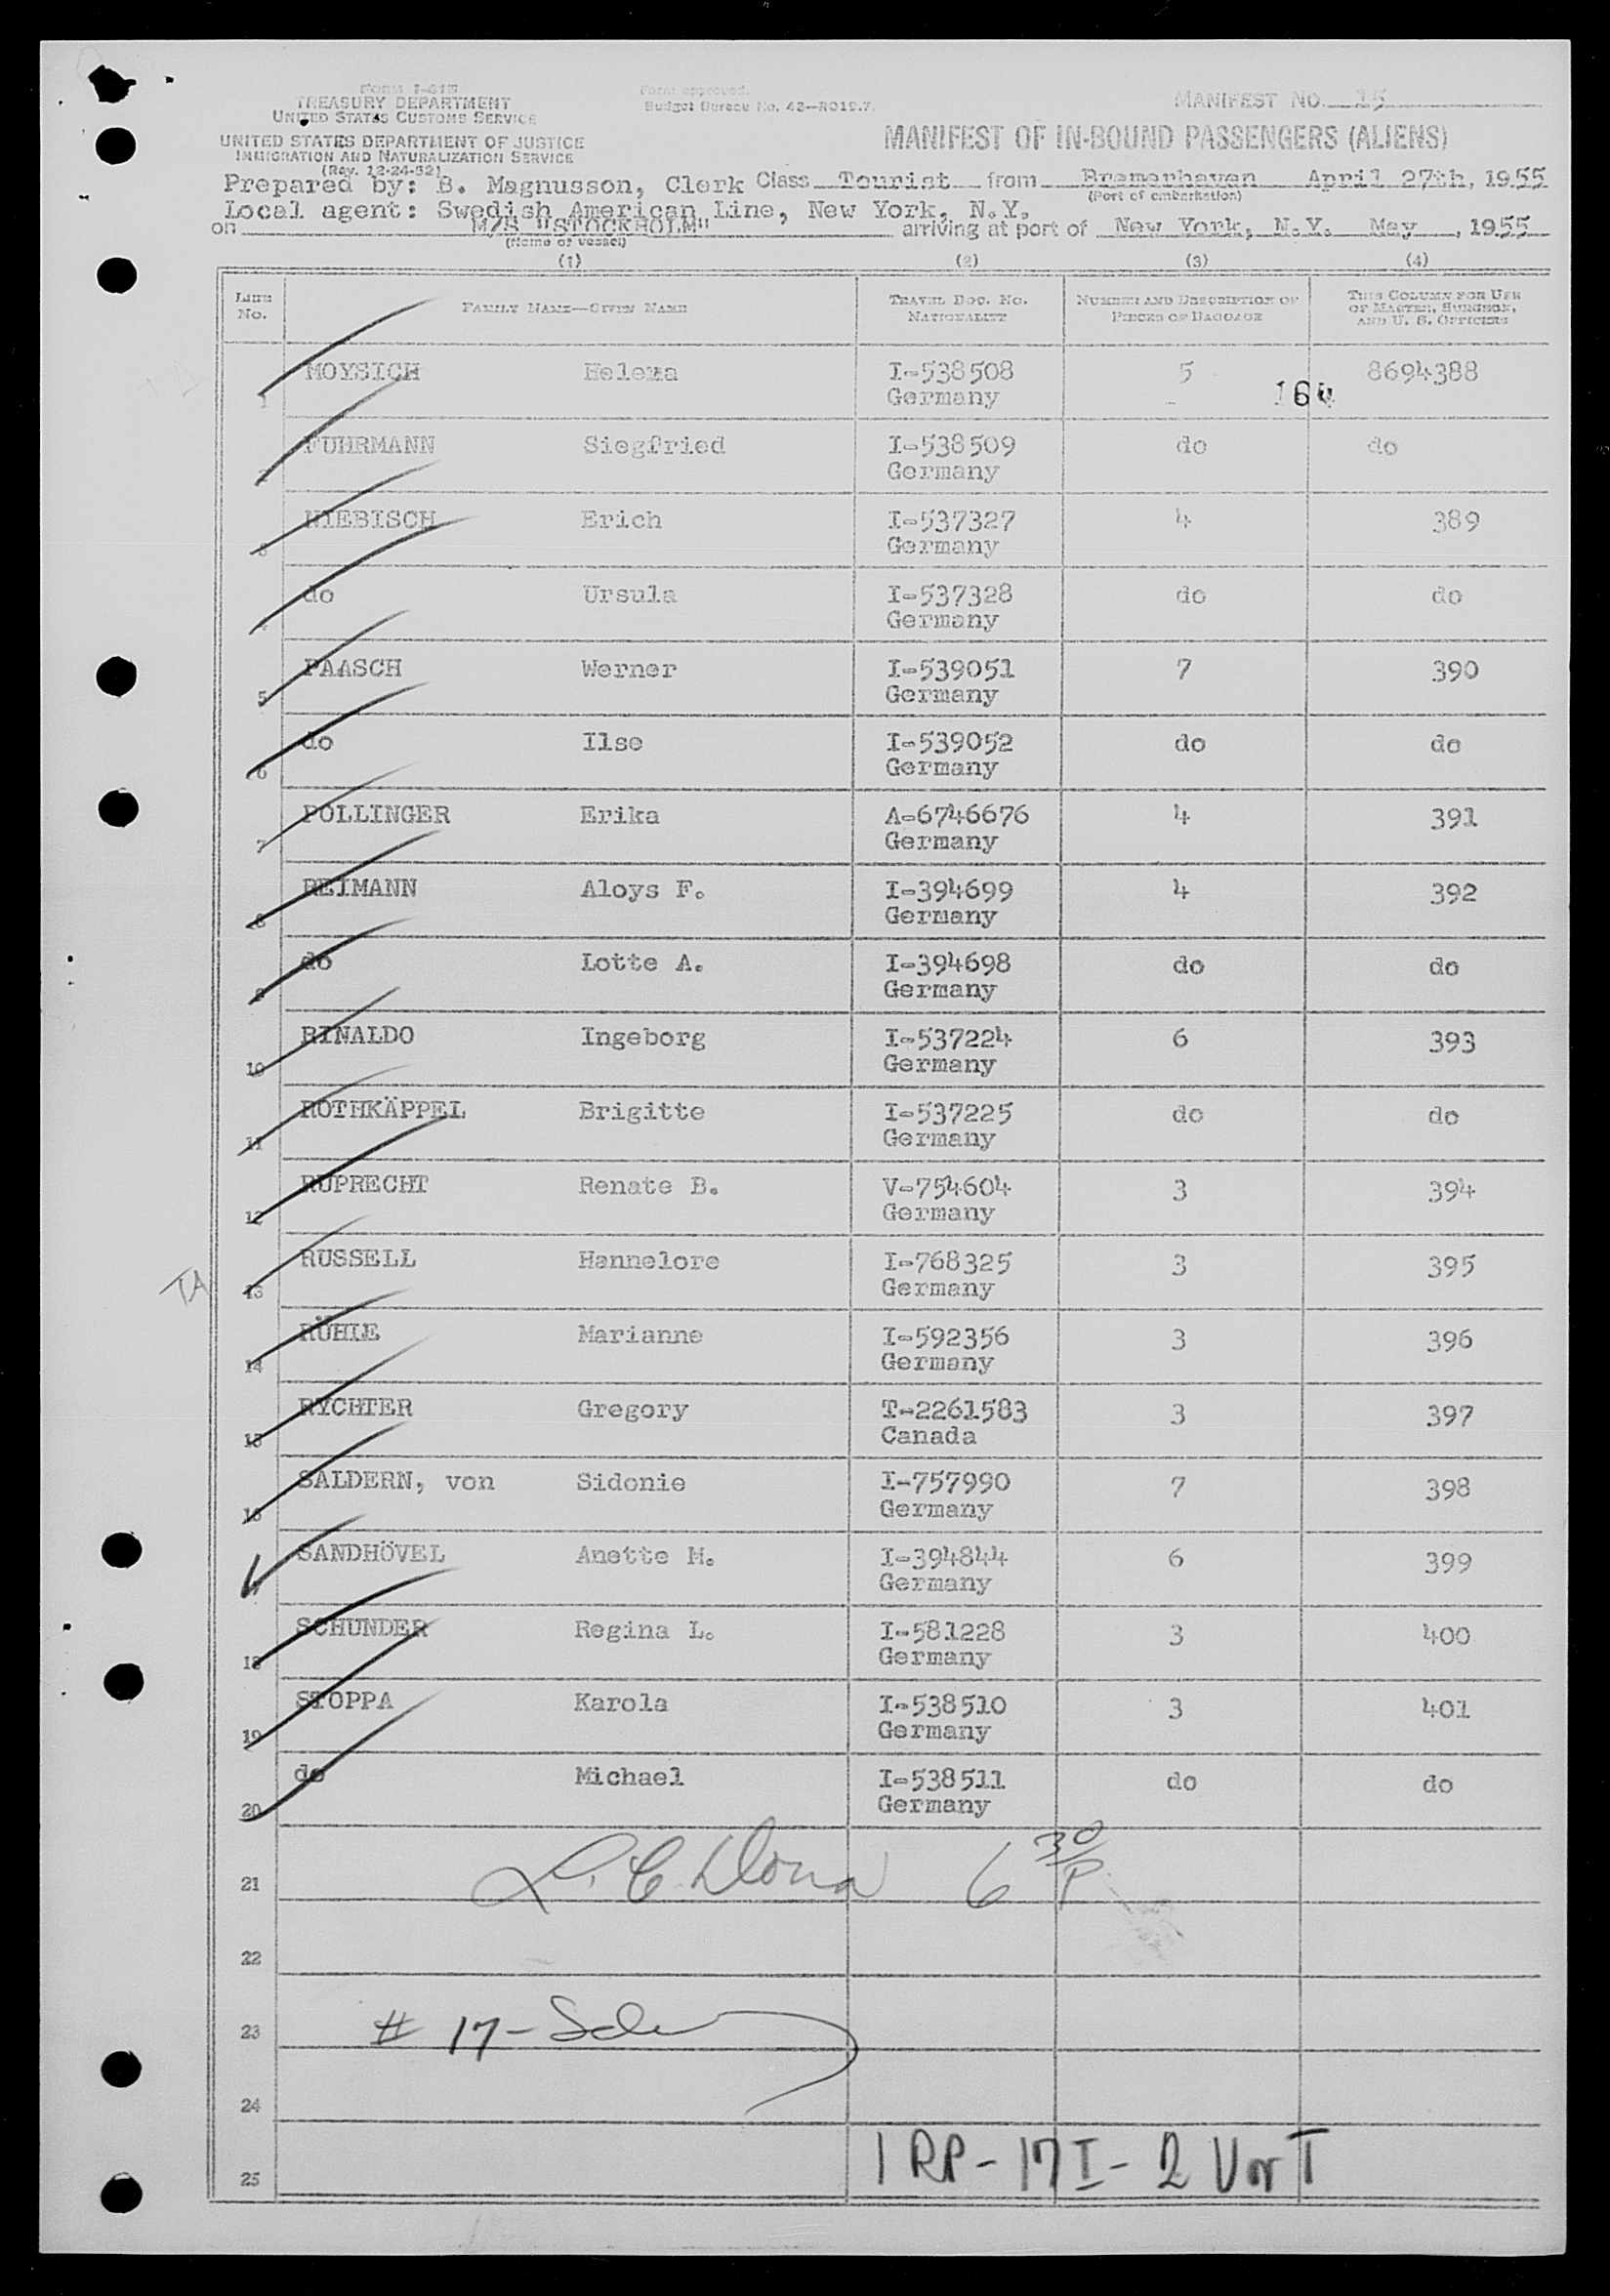 FORM I-418
TREASURY DEPARTMENT
UNITED STATES CUSTOMS SERVICE
UNITED STATES DEPARTMENT OF JUSTICE
IMMIGRATION AND NATURALIZATION SERVICE
(Rev. 12-24-52)
Form approved.
Budget Bureau No. 43—R019.7.
MANIFEST NO. 15
MANIFEST OF IN-BOUND PASSENGERS (ALIENS)
Prepared by: B. Magnusson, Clerk Class Tourist from Bremerhaven April 27th, 1955
(Port of embarkation)
Local agent: Swedish American Line, New York, N.Y.
on M/S "STOCKHOLM" arriving at port of New York, N.Y. May , 1955
(Name of vessel)
(1) (2) (3) (4)
LINE NO. FAMILY NAME—GIVEN NAME TRAVEL DOC. NO. NATIONALITY NUMBER AND DESCRIPTION OF PIECES OF BAGGAGE THIS COLUMN FOR USE OF MASTER, SURGEON, AND U. S. OFFICERS
1 MOYSICH Helena I-538508 5 8694388
Germany 164
2 FUHRMANN Siegfried I-538509 do do
Germany
3 NIEBISCH Erich I-537327 4 389
Germany
do Ursula I-537328 do do
Germany
5 PAASCH Werner I-539051 7 390
Germany
6 do Ilse I-539052 do do
Germany
7 POLLINGER Erika A-6746676 4 391
Germany
8 REIMANN Aloys F. I-394699 4 392
Germany
9 do Lotte A. I-394698 do do
Germany
10 RINALDO Ingeborg I-537224 6 393
Germany
11 ROTHKÄPPEL Brigitte I-537225 do do
Germany
12 RUPRECHT Renate B. V-754604 3 394
Germany
TA 13 RUSSELL Hannelore I-768325 3 395
Germany
14 RÜHLE Marianne I-592356 3 396
Germany
15 RYCHTER Gregory T-2261583 3 397
Canada
16 SALDERN, von Sidonie I-757990 7 398
Germany
SANDHÖVEL Anette M. I-394844 6 399
Germany
18 SCHUNDER Regina L. I-581228 3 400
Germany
19 STOPPA Karola I-538510 3 401
Germany
20 do Michael I-538511 do do
Germany
21 6 30/P
22
23 # 17-
24
25 1 RP - 17 I - 2 V or T